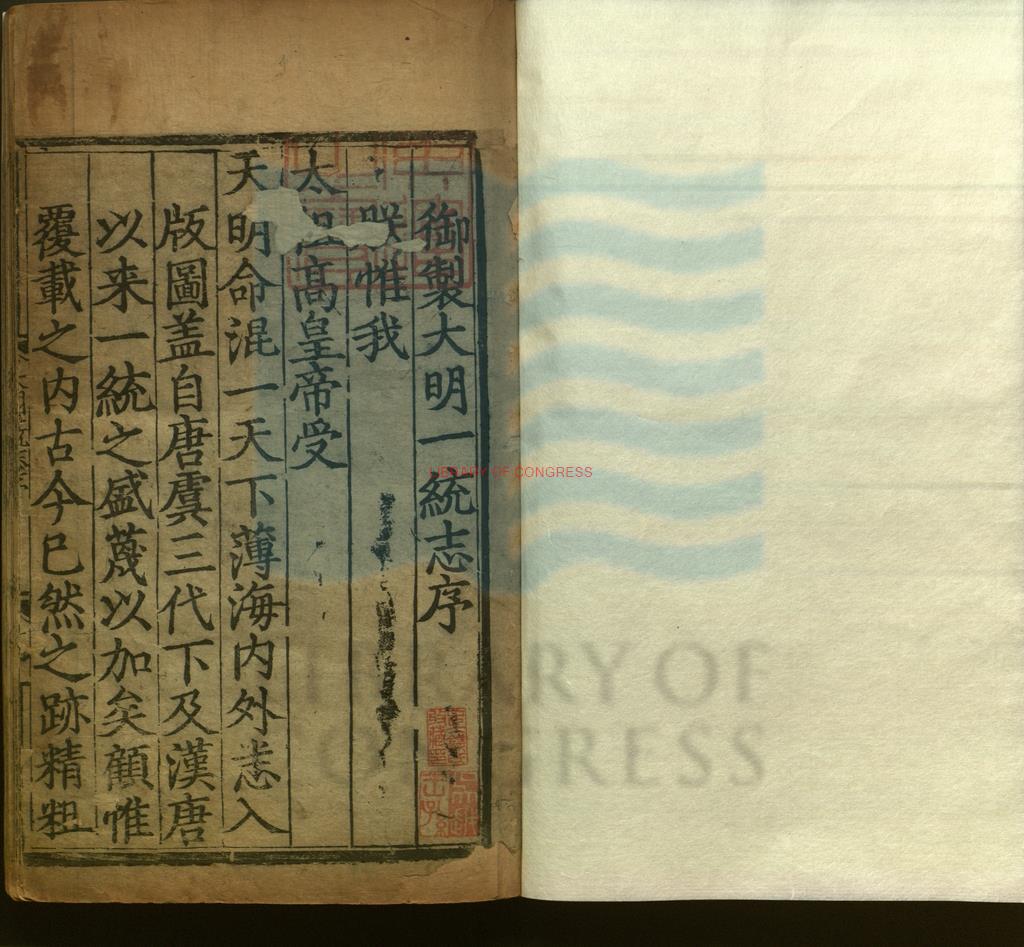 御製大明一統志序
朕惟我
太祖高皇帝受
天明命混一天下薄海内外悉入
版圖盖自唐虞三代下及漢唐
以来一統之盛蔑以加矣顧惟
覆載之内古今已然之跡精粗
LIBRARY OF CONGRESS
LIBRARY OF
CONGRESS